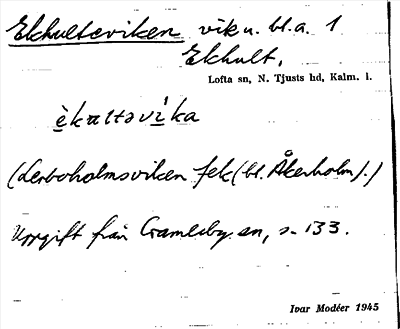 Ekhulteviken vik u. bl.a. 1
Ekhult,
Lofta sn, N. Tjusts hd, Kalm. l.
èkæltəvìka
(Lerboholmsviken fek (bl. Åkerholm).)
Uppgift från Gamleby sn, s. 133.
Ivar Modéer 1945